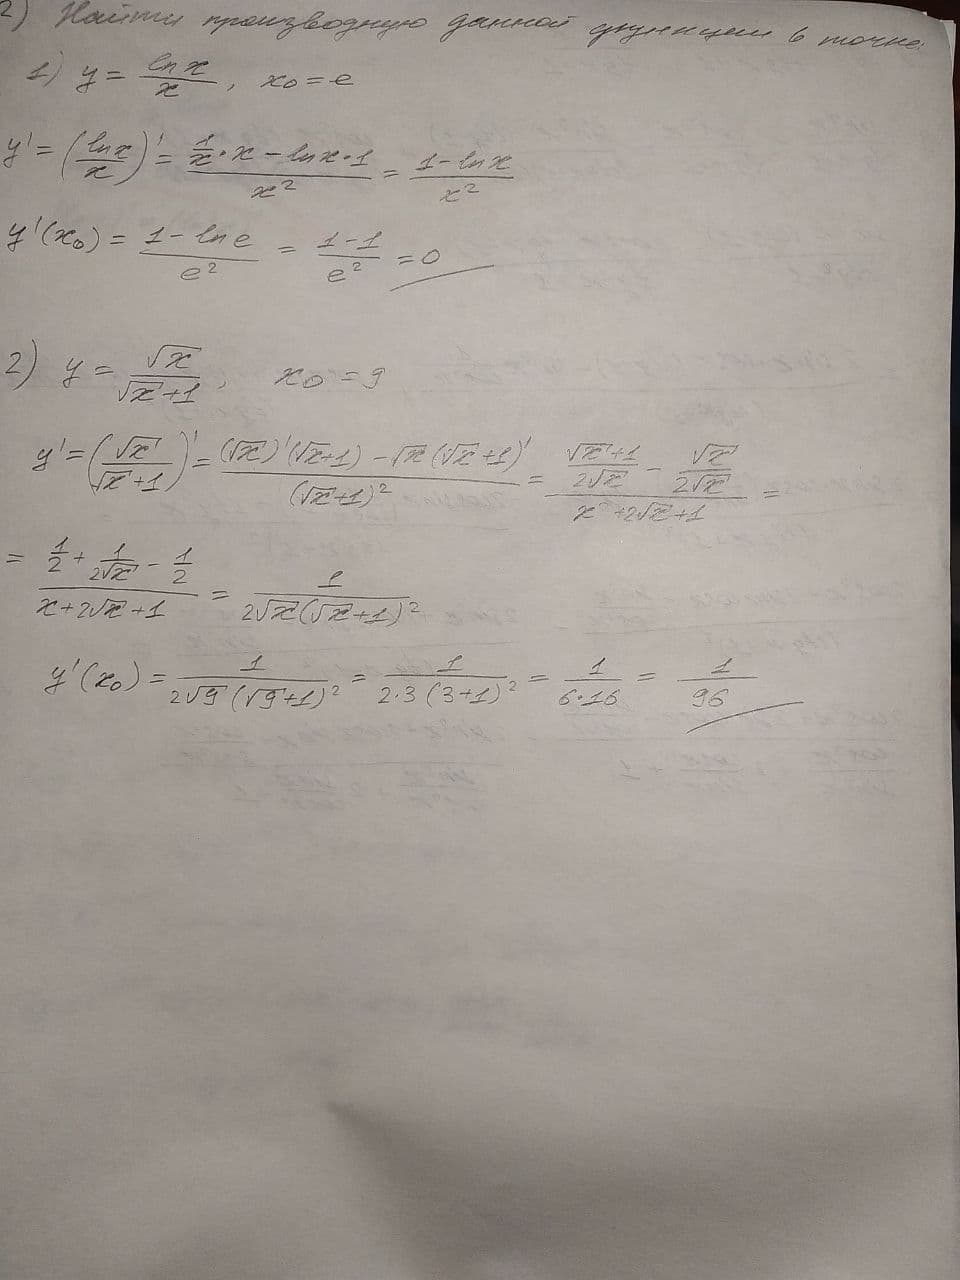 2) Найти производную данной функции в точке:
1) y = ln x / x, x₀ = e
y' = (ln x / x)' = (1/x · x − ln x · 1) / x² = (1 − ln x) / x²
y'(x₀) = (1 − ln e) / e² = (1 − 1) / e² = 0
2) y = √x / (√x + 1), x₀ = 9
y' = (√x / (√x + 1))' = ((√x)'(√x + 1) − √x (√x + 1)') / (√x + 1)² = ((√x + 1) / (2√x) − √x / (2√x)) / (x + 2√x + 1) =
= (1/2 + 1/(2√x) − 1/2) / (x + 2√x + 1) = 1 / (2√x (√x + 1)²)
y'(x₀) = 1 / (2√9 (√9 + 1)²) = 1 / (2·3 (3 + 1)²) = 1 / (6·16) = 1/96